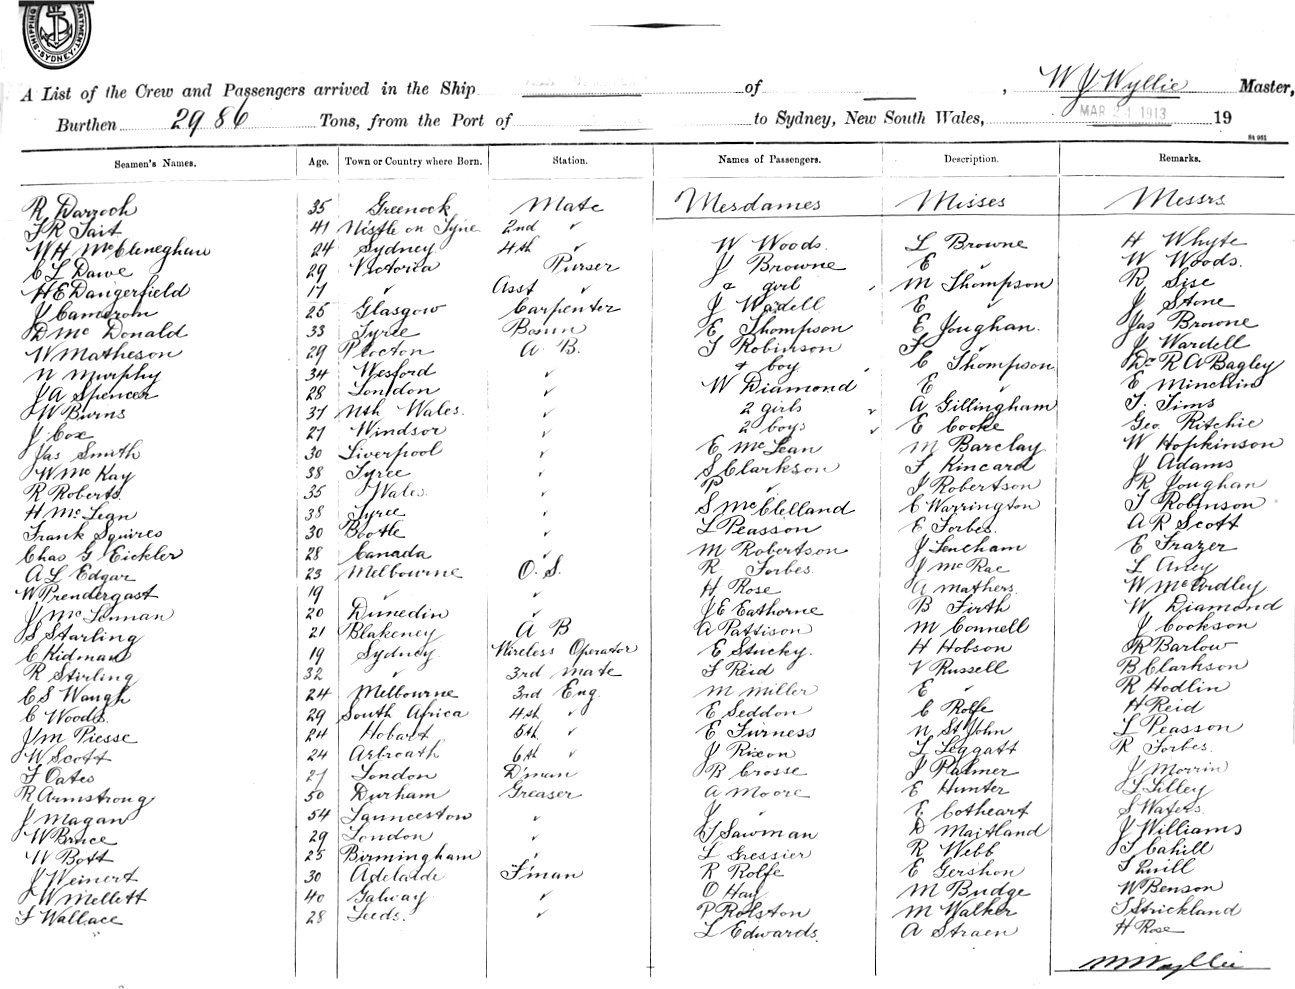 SHIPPING DEPARTMENT SYDNEY
A List of the Crew and Passengers arrived in the Ship of , W J Wyllie Master,
Burthen 2986 Tons, from the Port of to Sydney, New South Wales, MAR 24 1913 19
St 961
Seamen's Names. Age. Town or Country where Born. Station. Names of Passengers. Description. Remarks.
R Darroch 35 Greenock Mate Mesdames Misses Messrs
F R Tait 41 on Tyne 2nd ✓
W H McCleneghan 24 Sydney 4th ✓ W Woods L Browne H Whyte
C L Dawe 29 Victoria Purser J Browne E ✓ W Woods
H E Dangerfield 17 ✓ Asst ✓ & girl M Thompson R Sise
J Cameron 25 Glasgow Carpenter J Wadell E ✓ J Stone
D McDonald 33 Tyree Bosun E Thompson E Joughan Jas Browne
W Matheson 29 Plocton A B. T Robinson F ✓ J Wardell
N Murphy 34 Wexford ✓ & boy C Thompson Dr R A Bagley
J A Spencer 28 London ✓ W Diamond E ✓ E Minchin
W Burns 37 Nth Wales ✓ 2 girls A Gillingham T Tims
J Cox 27 Windsor ✓ 2 boys E Cooke Geo. Ritchie
Jas Smith 30 Liverpool ✓ E McLean M Barclay W Hopkinson
W McKay 38 Tyree ✓ S Clarkson F Kincard J Adams
R Roberts 35 Wales ✓ P ✓ J Robertson R Joughan
H McLean 38 Tyree ✓ S McClelland C Warrington T Robinson
Frank Squires 30 Bootle ✓ L Peasson E Forbes A R Scott
Chas G Eickler 28 Canada ✓ M Robertson J Lencham E Frazer
A L Edgar 23 Melbourne O. S. R Forbes J McRae L
W Prendergast 19 ✓ ✓ H Rose A Mathers W McArdley
J McLennan 20 Dunedin ✓ J E Eathorne B Firth W Diamond
S Starling 21 Blakeney A B A Pattison M Connell J Cookson
C Kidman 19 Sydney Wireless Operator E Stucky H Hobson R Barlow
R Stirling 32 ✓ 3rd Mate F Reid V Russell B Clarkson
C S Waugh 24 Melbourne 3rd Eng. M Miller E ✓ R Hodlin
C Woods 29 South Africa 4th ✓ E Seddon C Rolfe H Reid
J M Piesse 24 Hobart 5th ✓ E Furness N St John L Peasson
W Scott 24 Arbroath 6th ✓ J Rixon L Leggatt R Forbes
F Oates 27 London D'man B Crosse J Palmer J Morrin
R Armstrong 50 Durham Greaser A Moore E Hunter L Lilley
J Magan 54 Launceston ✓ J ✓ E Cotheart S Waters
W Bruce 29 London ✓ T Sawman D Maitland J Williams
W Bott 25 Birmingham ✓ L Gressier R Webb T Cahill
J Weinert 30 Adelaide F'man R Rolfe E Gershon T Quill
W Mellett 40 Galway ✓ O Hay M Budge W Benson
F Wallace 28 Leeds ✓ P Rolston M Walker T Strickland
L Edwards A Straen H Rose
W Wyllie